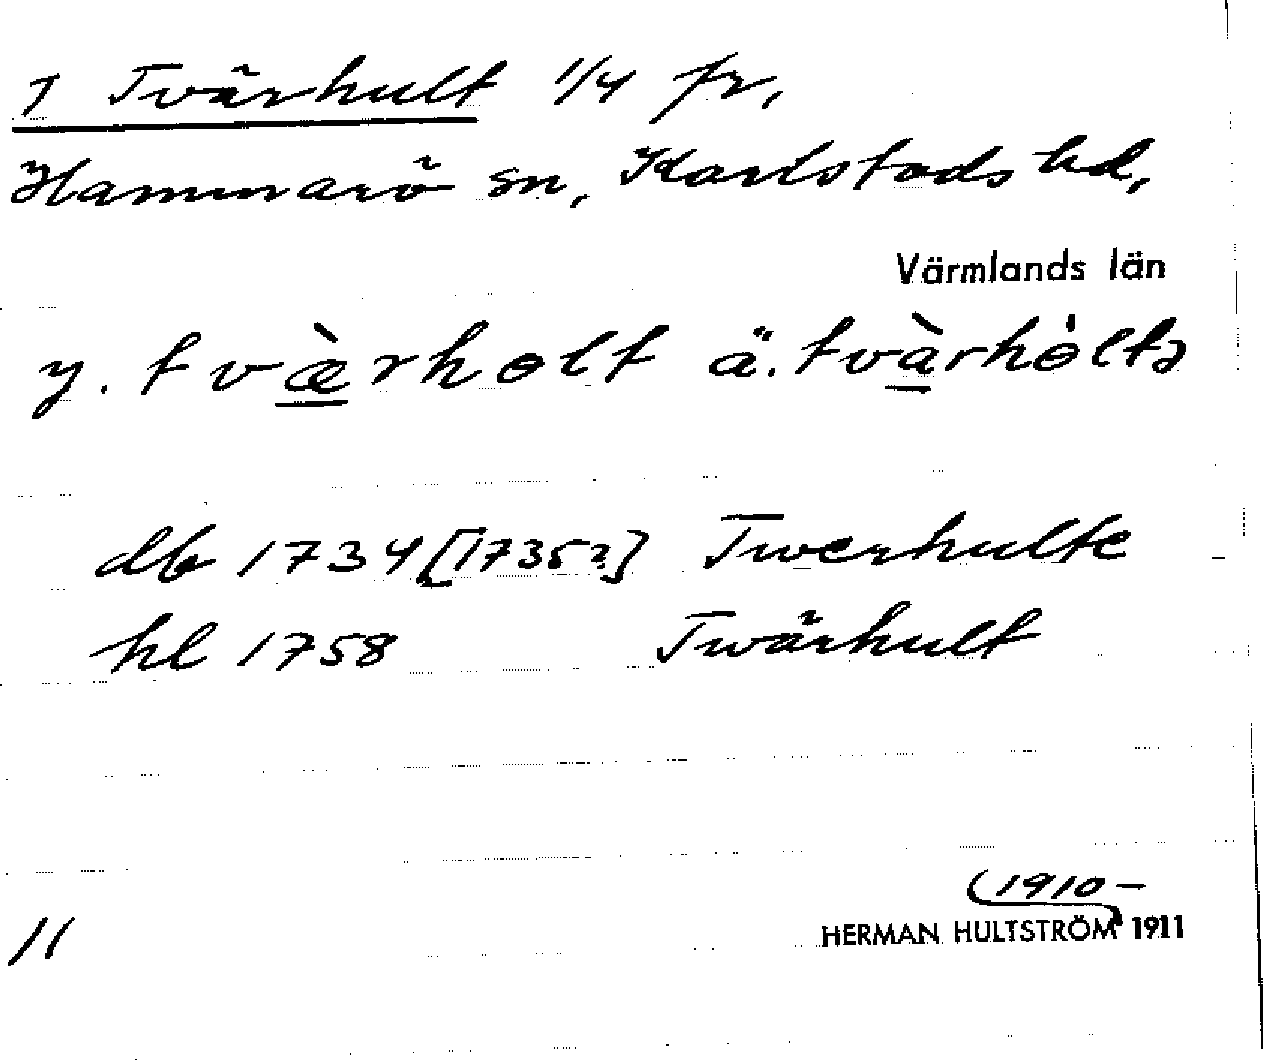 1 Tvärhult 1/4 fr,
Hammarö sn, Karlstads hd,
Värmlands län
y. tvæ̀rhɵlt ä. tvàrhɵ̀lta
db 1734 [1735?] Twerhulte
hl 1758 Twärhult
(1910–
11 HERMAN HULTSTRÖM 1911